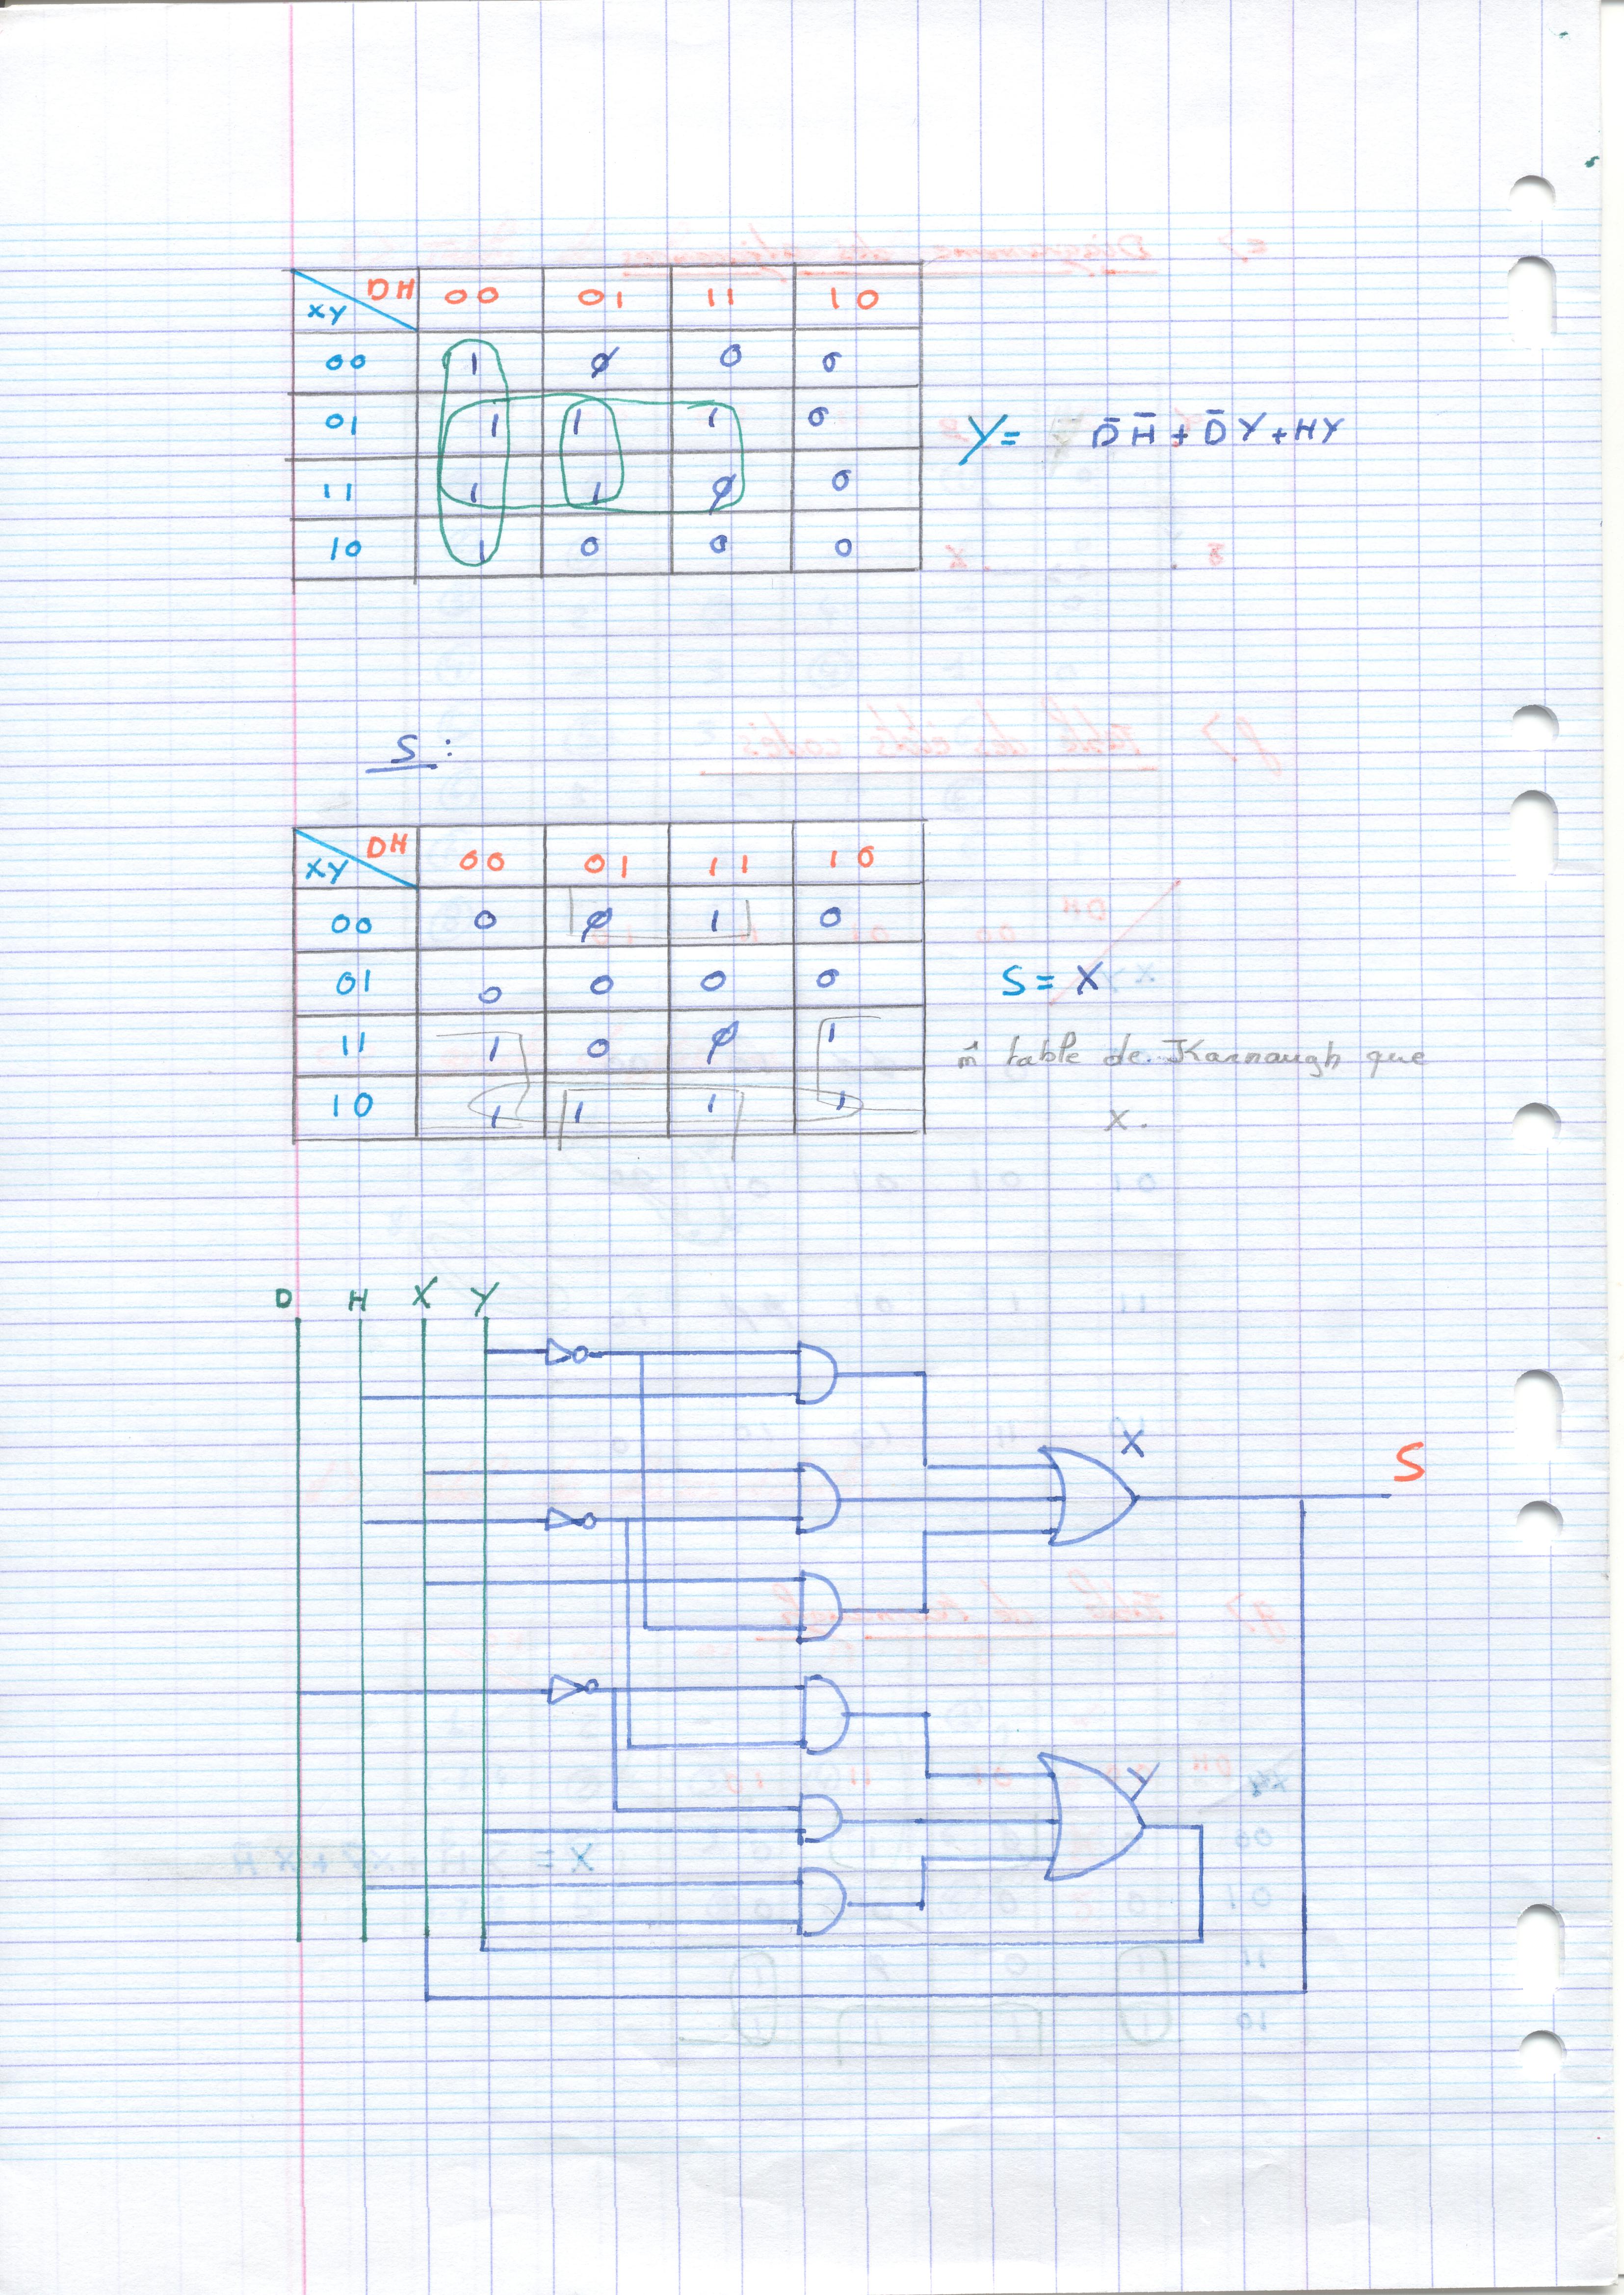 DH
XY 00 01 11 10
00 1 ∅ 0 0
01 1 1 1 0
11 1 1 ∅ 0
10 1 0 0 0
Y = D̄ H̄ + D̄ Y + HY
S :
DH
XY 00 01 11 10
00 0 ∅ 1 0
01 0 0 0 0
11 1 0 ∅ 1
10 1 1 1 1
S = X
m̂ table de Karnaugh que
X.
D H X Y
X
S
Y